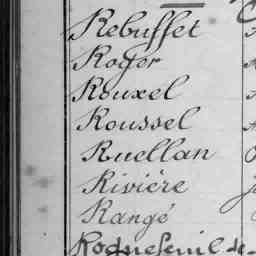 Rebuffet
Roger
Rouxel
Roussel
Ruellan
Rivière
Rangé
Roquefeuil de